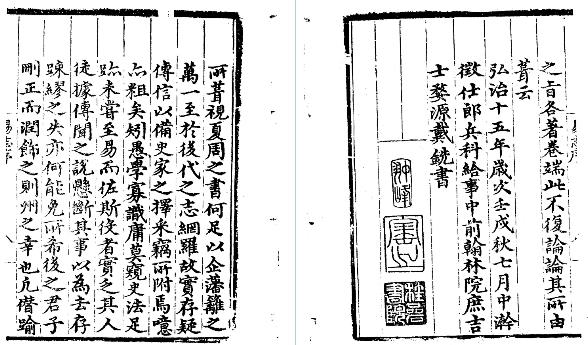 所葺視夏周之書何足以企藩籬之
萬一至於後代之志網羅故實存疑
傳信以備史家之擇采竊所附焉噫
亦粗矣矧愚學寡識庸莫窺史法足
跡未嘗至易而佐斯役者實乏其人
徒據傳聞之說懸斷其事以為去存
踈繆之失亦何能免所希後之君子
刪正而潤飾之則州之幸也凡僭踰
之旨各著卷端此不復論論其所由
葺云
弘治十五年歲次壬戌秋七月中澣
徵仕郎兵科給事中前翰林院庶吉
士婺源戴銑書
翀峰
桂巖書院